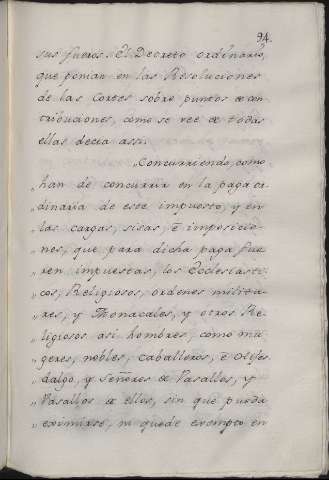 94.
sus fueros. El Decreto ordinario,
que ponian en las Resoluciones
de las Cortes sobre puntos de con
tribuciones, como se vee de todas
ellas decia assi.
Concurriendo, como
„ han de concurrir en la paga or
„ dinaria de este impuesto, y en
„ las cargas, sisas, é imposicio-
„ nes, que para dicha paga fue
„ ren impuestas, los Ecclesiasti
„ cos, Religiosos, ordenes milita
„ res, y Monacales, y otros Re-
„ ligiosos asi hombres, como mu
„ geres, nobles, caballeros, é
„ dalgo, y Señores de Vasallos, y
„ Vasallos de ellos, sin que pueda
„ eximirse, ni quede exempto en